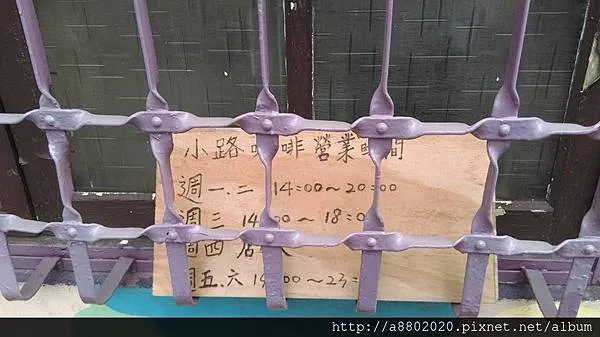 小路咖啡營業時間
週一.二 14:00~20:00
週三 14:00~18:0
週四 店
週五.六 1 :00~23:
http://a8802020.pixnet.net/album